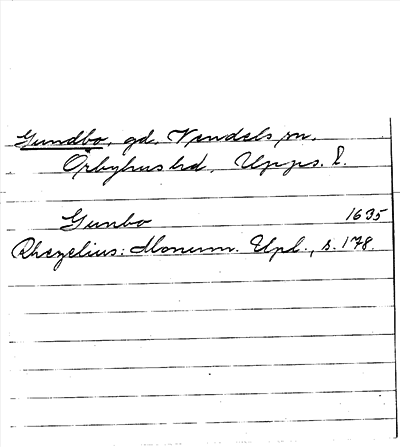 Gundbo, gd, Vendels sn,
Örbyhus hd, Upps. l.
Gunbo 1635
Rhezelius: Monum. Upl., s. 178.